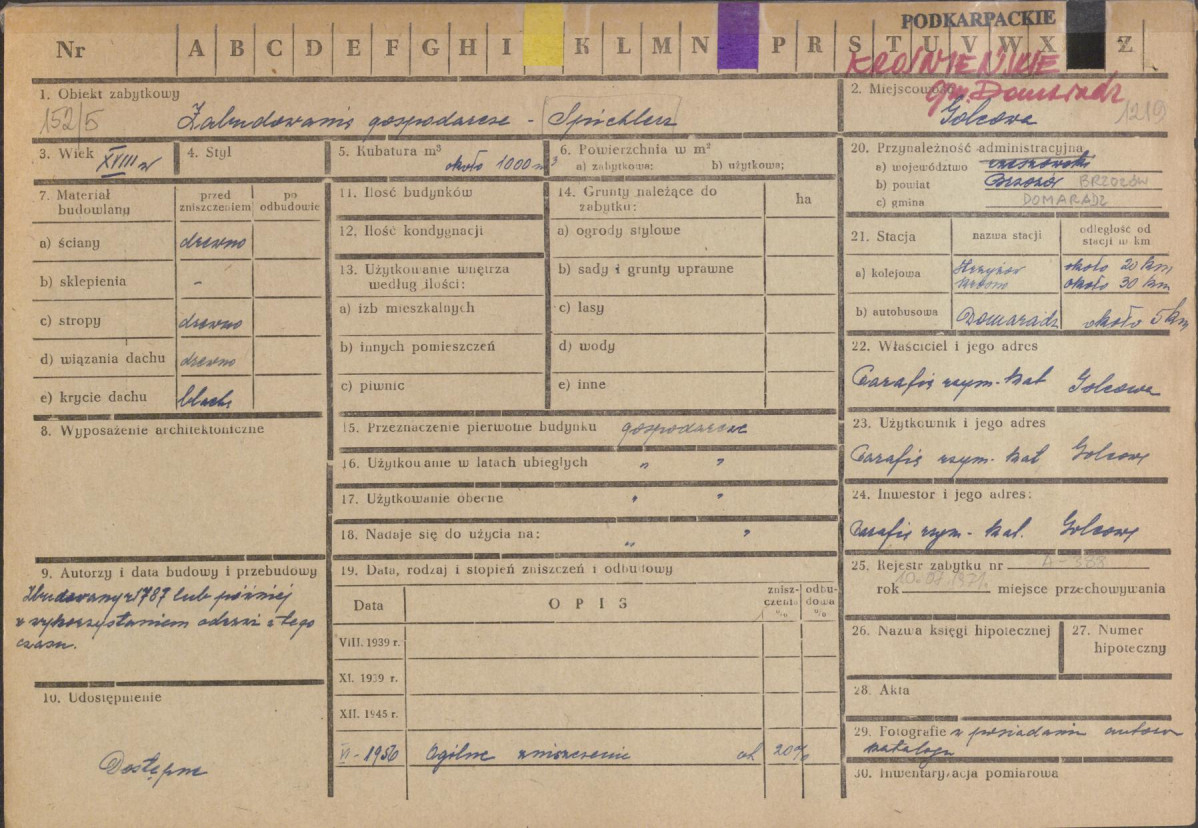 PODKARPACKIE
Nr A B C D E F G H I K L M N P R S T U V W X Z
KROŚNIEŃSKIE
gm. Domaradz
1. Obiekt zabytkowy
152/5 Zabudowania gospodarcze - Spichlerz
2. Miejscowość
Golcowa 1219
3. Wiek XVIII w
4. Styl
5. Kubatura m³
około 1000 m³
6. Powierzchnia w m²
a) zabytkowa; b) użytkowa;
7. Materiał budowlany
przed zniszczeniem
po odbudowie
a) ściany drewno
b) sklepienia -
c) stropy drewno
d) wiązania dachu drewno
e) krycie dachu blacha
8. Wyposażenie architektoniczne
9. Autorzy i data budowy i przebudowy
Zbudowany w 1787 lub później
z wykorzystaniem odrzwi z tego
czasu.
10. Udostępnienie
Dostępne
11. Ilość budynków
12. Ilość kondygnacji
13. Użytkowanie wnętrza
według ilości:
a) izb mieszkalnych
b) innych pomieszczeń
c) piwnic
14. Grunty należące do
zabytku: ha
a) ogrody stylowe
b) sady i grunty uprawne
c) lasy
d) wody
e) inne
15. Przeznaczenie pierwotne budynku gospodarcze
16. Użytkowanie w latach ubiegłych " "
17. Użytkowanie obecne " "
18. Nadaje się do użycia na: " "
19. Data, rodzaj i stopień zniszczeń i odbudowy
Data OPIS zniszczenia % odbudowa %
VIII. 1939 r.
XI. 1939 r.
XII. 1945 r.
VI - 1956 Ogólne zniszczenie ok 20%
20. Przynależność administracyjna
a) województwo rzeszowskie
b) powiat Brzozów BRZOZÓW
c) gmina DOMARADZ
21. Stacja nazwa stacji odległość od stacji w km
a) kolejowa Strzyżów około 20 km
Krosno około 30 km
b) autobusowa Domaradz około 5 km
22. Właściciel i jego adres
Parafia rzym. kat Golcowa
23. Użytkownik i jego adres
Parafia rzym. kat Golcowa
24. Inwestor i jego adres:
Parafia rzym. kat. Golcowa
25. Rejestr zabytku nr A-388
rok 10.07.1971 miejsce przechowywania
26. Nazwa księgi hipotecznej
27. Numer hipoteczny
28. Akta
29. Fotografie w posiadaniu autora
katalogu
30. Inwentaryzacja pomiarowa